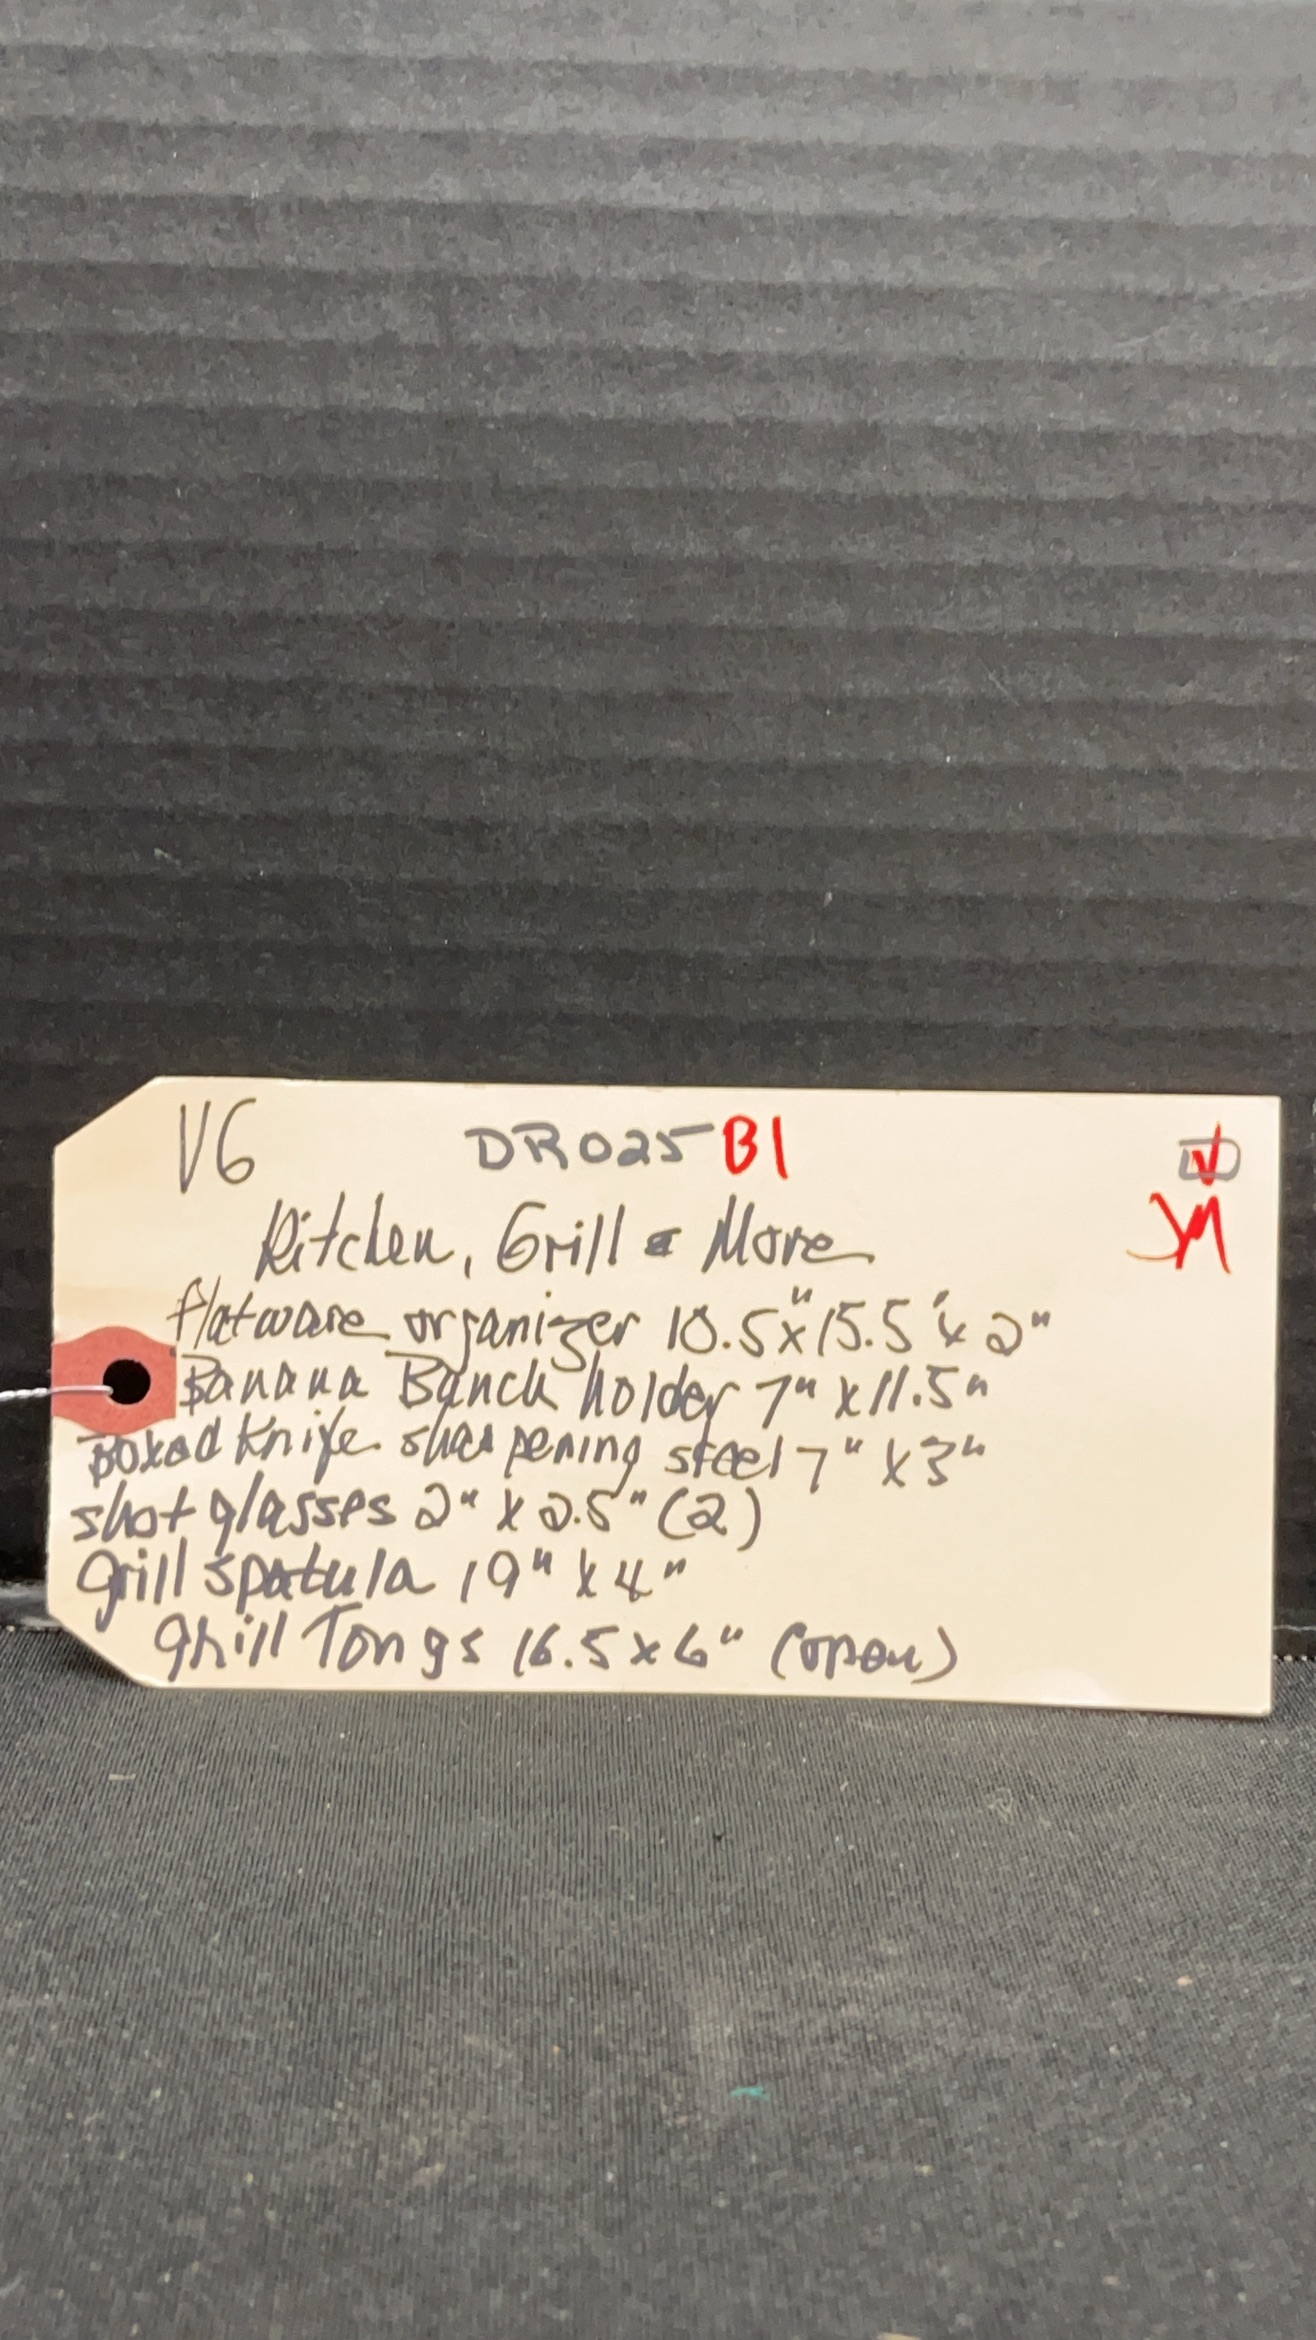 V6 DR025 B1
Kitchen, Grill & More
flatware organizer 10.5"x15.5"x2"
Banana Bunch holder 7" x 11.5"
Boxed Knife sharpening steel 7" x 3"
shot glasses 2" x 2.5" (2)
Grill spatula 19" x 4"
Grill Tongs 16.5 x 6" (open)